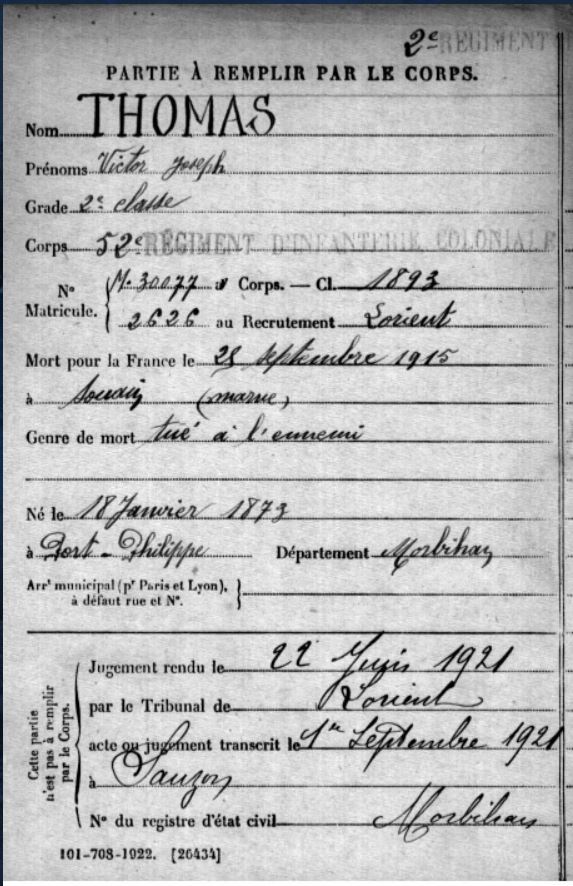 2e REGIMENT
PARTIE À REMPLIR PAR LE CORPS.
Nom THOMAS
Prénoms Victor Joseph
Grade 2e classe
Corps 52e RÉGIMENT D'INFANTERIE COLONIALE
No Matricule. { M. 30077 au Corps. — Cl. 1893
2626 au Recrutement Lorient
Mort pour la France le 28 septembre 1915
à Souain (marne)
Genre de mort tué à l'ennemi
Né le 18 Janvier 1873
à Port-Philippe Département Morbihan
Arrt municipal (pr Paris et Lyon),
à défaut rue et No.
Cette partie n'est pas à remplir par le Corps.
Jugement rendu le 22 Juin 1921
par le Tribunal de Lorient
acte ou jugement transcrit le 1er Septembre 1921
à Sauzon
No du registre d'état civil Morbihan
101-708-1922. [26434]